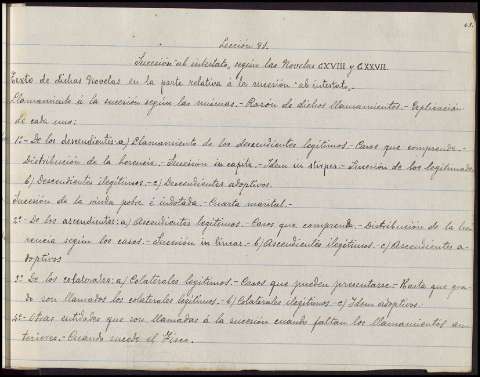 Lección 91.
Sucesión ab intestato, según las Novelas CXVIII y CXXVII.
Texto de dichas Novelas en la parte relativa á la sucesión ab intestato.-
Llamamiento á la sucesión según las mismas.- Razón de dichos llamamientos.- Explicación
de cada uno:
1º- De los descendientes: a) Llamamiento de los descendientes legítimos.- Casos que comprende.-
Distribución de la herencia.- Sucesión in cápita.- Idem in stirpes.- Sucesión de los legitimados
b) Descendientes ilegítimos.- c) Descendientes adoptivos.
Sucesión de la viuda pobre é indotada.- Cuarta marital.-
2º- De los ascendientes: a) Ascendientes legítimos.- Casos que comprende.- Distribución de la he-
rencia según los casos.- Sucesión in líneas.- b) Ascendientes ilegítimos. c) Ascendientes a-
doptivos
3º- De los colaterales: a) Colaterales legítimos.- Casos que pueden presentarse.- Hasta que gra-
do son llamados los colaterales legítimos.- b) Colaterales ilegítimos c) Idem adoptivos.-
4º- Otras entidades que son llamadas á la sucesión cuando faltan los llamamientos an-
teriores.- Cuando sucede el Fisco.